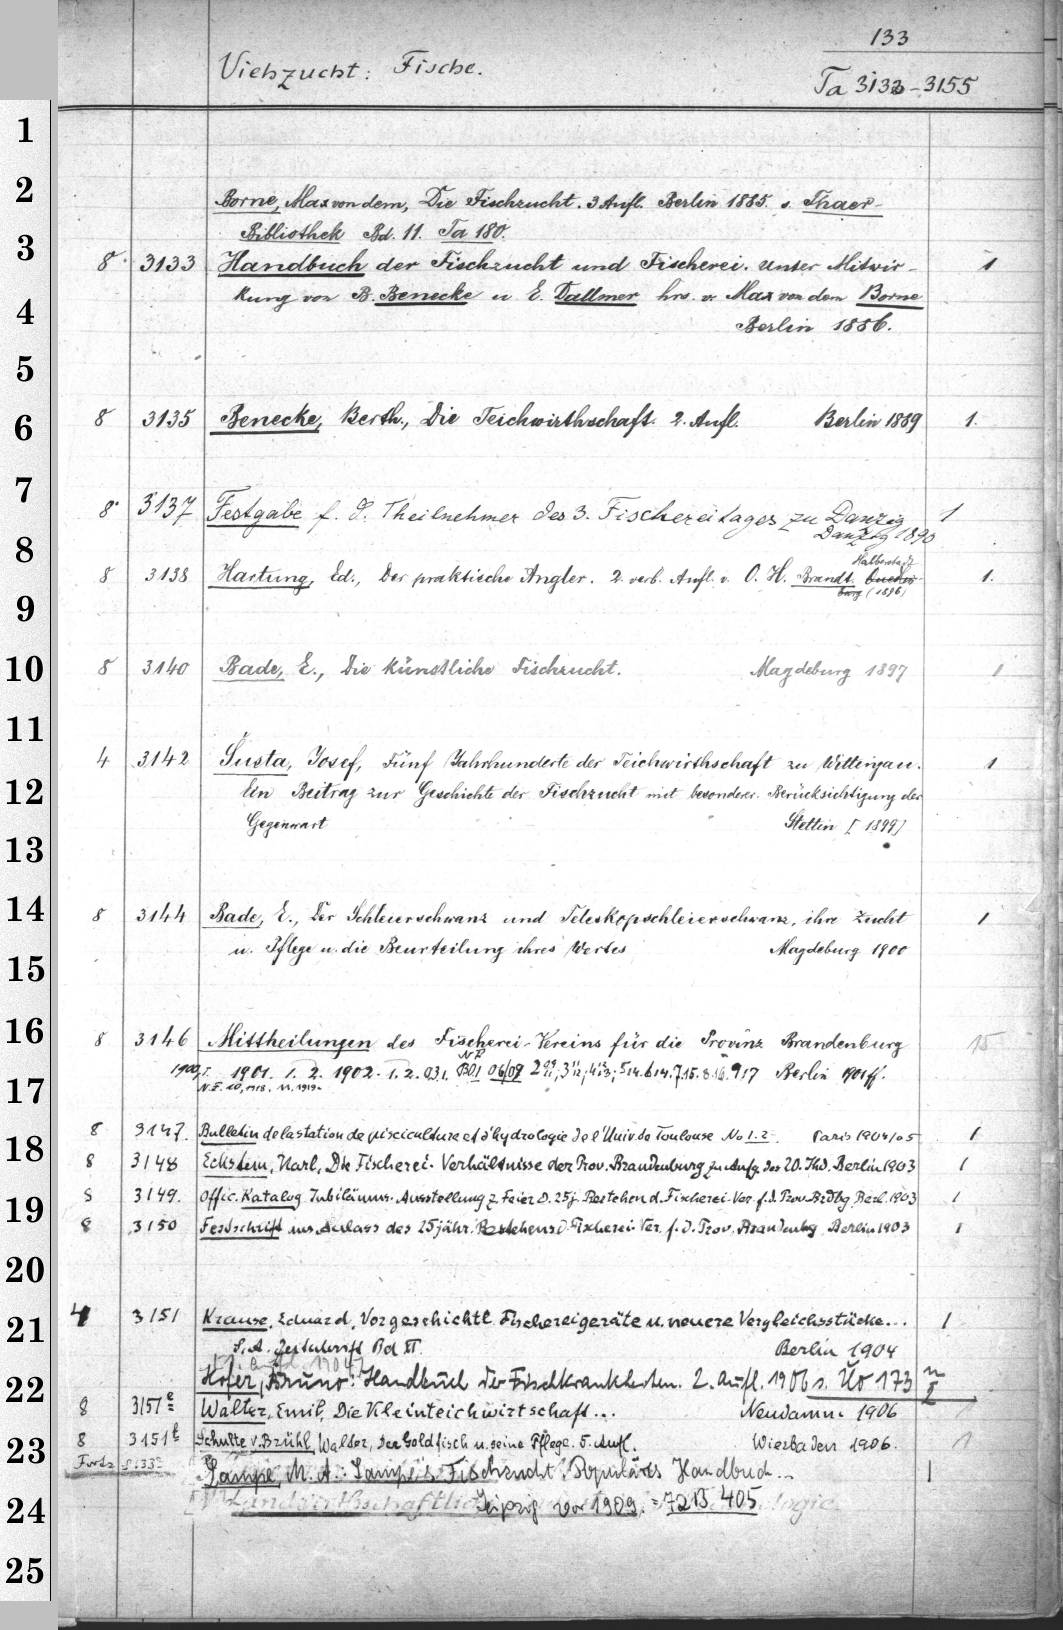 133
Viehzucht: Fische.
Ta 3133-3155
1
2
3
4
5
6
7
8
9
10
11
12
13
14
15
16
17
18
19
20
21
22
23
24
25
Borne, Max von dem, Die Fischzucht. 3 Aufl. Berlin 1885. s. Thaer-
Bibliothek Bd. 11. Ta 180.
8° 3133 Handbuch der Fischzucht und Fischerei. Unter Mitwir- 1
kung von B. Benecke u E. Dallmer hrs. v. Max von dem Borne
Berlin 1886.
8 3135 Benecke, Berth., Die Teichwirthschaft. 2. Aufl. Berlin 1889 1.
8° 3137 Festgabe f. d. Theilnehmer des 3. Fischereitages zu Danzig 1
Danzig 1890
Halberstadt
8 3138 Hartung, Ed., Der praktische Angler. 2. verb. Aufl. v. O. H. Brandt. 1.
burg (1896)
8 3140 Bade, E., Die künstliche Fischzucht. Magdeburg 1897 1
4 3142 Šusta, Josef, Fünf Jahrhunderte der Teichwirthschaft zu Wittingau. 1
Ein Beitrag zur Geschichte der Fischzucht mit besonderer Berücksichtigung der
Gegenwart Stettin [1899]
8 3144 Bade, E., Der Schleierschwanz und Teleskopschleierschwanz, ihre Zucht 1
u. Pflege u. die Beurteilung ihres Wertes Magdeburg 1900
8 3146 Mittheilungen des Fischerei-Vereins für die Provinz Brandenburg 15
1901. 1. 2. 1902. 1. 2. 03 1. 06/09 Berlin 1901 ff.
N.F. 10, 1918. 11. 1919.
8 3147. Bulletin de la station de pisciculture et d'hydrologie de l'Univ. de Toulouse No 1.2. Paris 1904/05 1
8 3148 Eckstein, Karl, Die Fischerei-Verhältnisse der Prov. Brandenburg zu Anfg. des 20. Jhd. Berlin 1903 1
8 3149. Offic. Katalog Jubiläums-Ausstellung z. Feier d. 25j. Bestehen d. Fischerei-Ver. f. d. Prov. Brdbg Berl. 1903 1
8 3150 Festschrift aus Anlass des 25jähr. Bestehens d. Fischerei Ver. f. d. Prov. Brandenbg Berlin 1903 1
4 3151 Krause, Eduard, Vorgeschichtl. Fischereigeräte u. neuere Vergleichsstücke... 1
S.A. Zeitschrift Bd XI. Berlin 1904
Hofer, Bruno: Handbuch der Fischkrankheiten. 2. Aufl. 1906 s. Uo 173
8 3151e Walter, Emil, Die Kleinteichwirtschaft... Neudamm 1906 1
8 3151t Schulte v. Brühl, Walter, Der Goldfisch u. seine Pflege. 5. Aufl. Wiesbaden 1906. 1
Forts. Lampe, M. A.: Lampe's Fischzucht. Populäres Handbuch... 1
Leipzig vor 1909. = 72 B 405